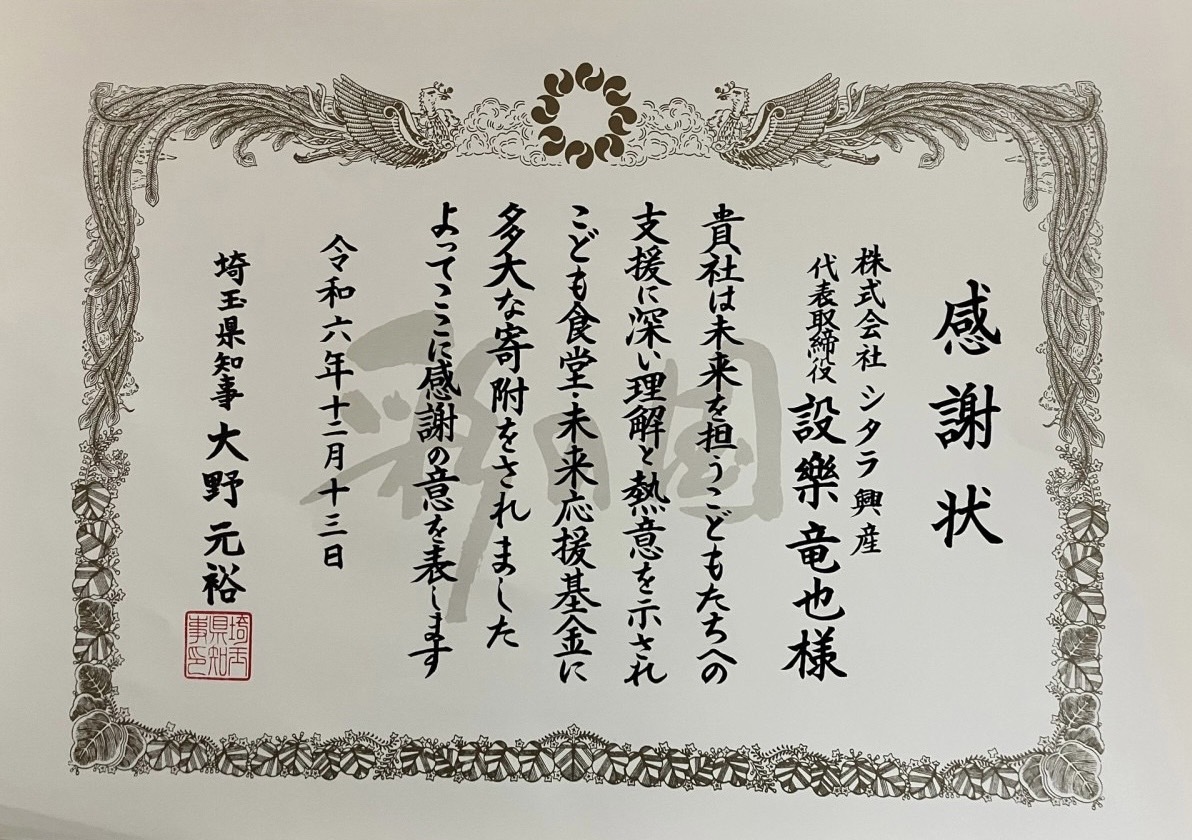 感謝状
株式会社 シタラ興産
代表取締役 設樂竜也様
貴社は未来を担うこどもたちへの
支援に深い理解と熱意を示され
こども食堂・未来応援基金に
多大な寄附をされました
よってここに感謝の意を表します
令和六年十二月十三日
埼玉県知事 大野元裕
埼玉
県知
事印